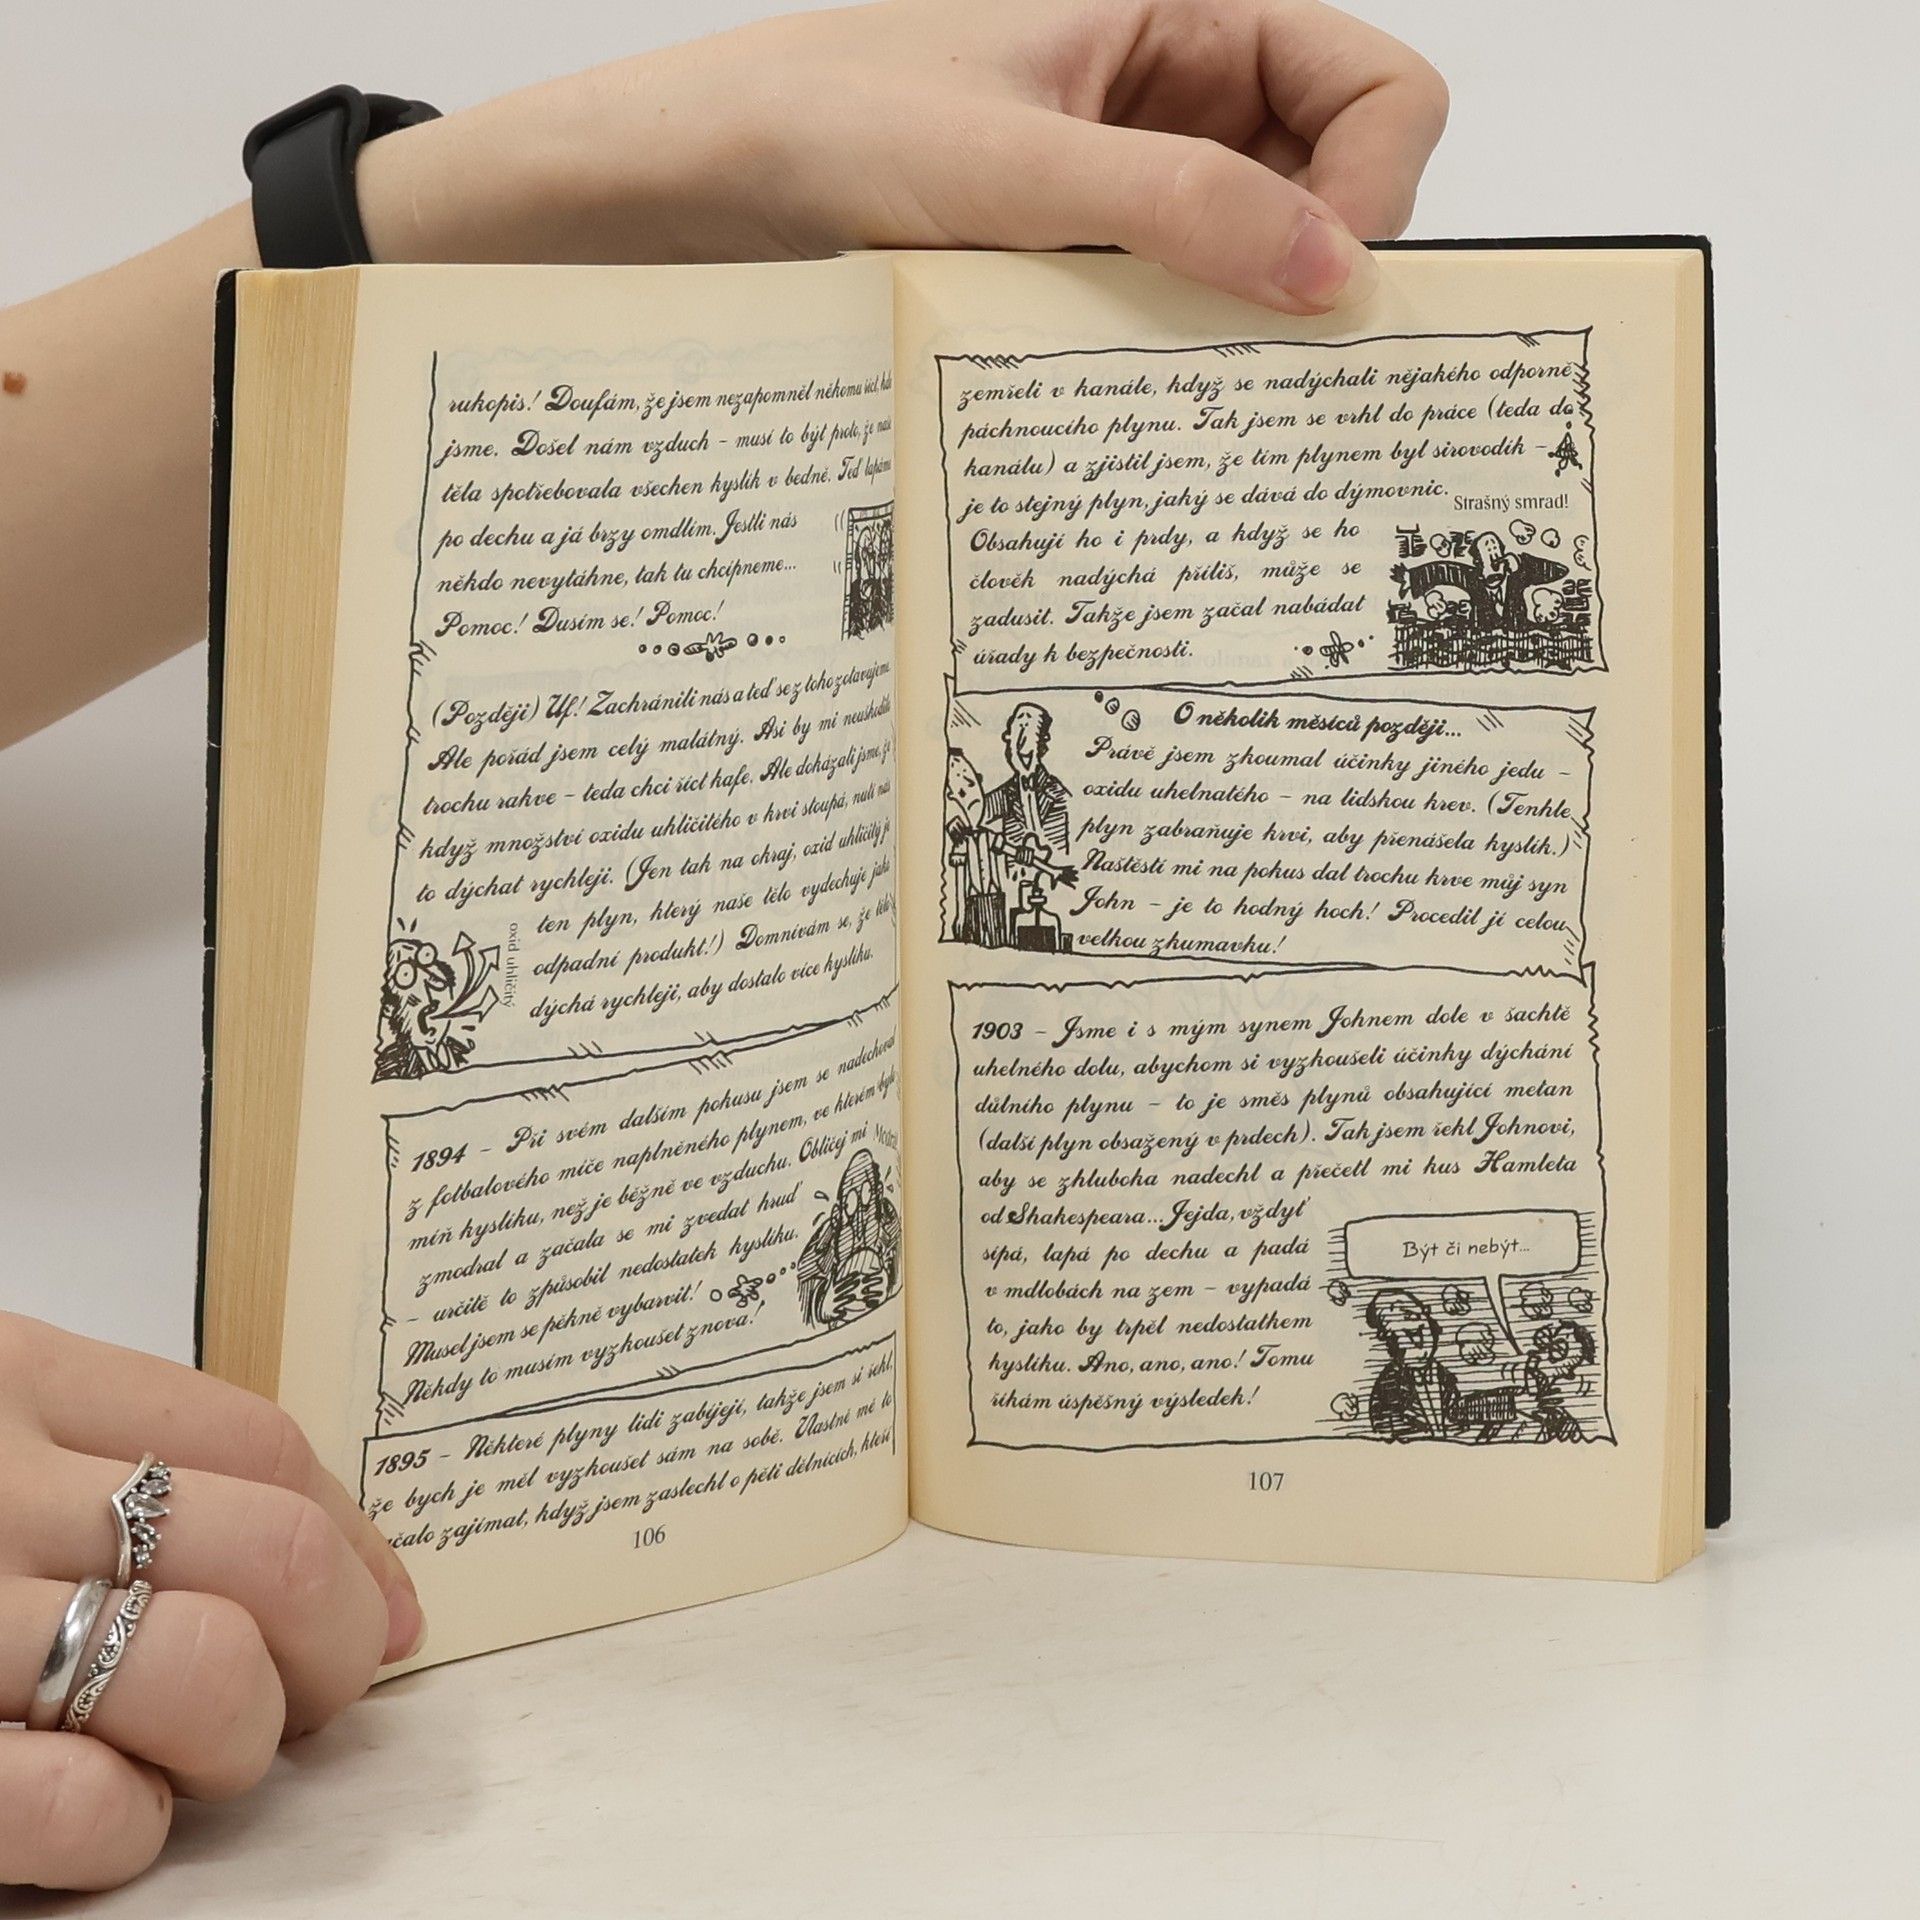 rukopis! Doufám, že jsem nezapomněl někomu říct, kde
jsme. Došel nám vzduch – musí to být proto, že naše
těla spotřebovala všechen kyslík v bedně. Teď lapáme
po dechu a já brzy omdlím. Jestli nás
někdo nevytáhne, tak tu chcípneme...
Pomoc! Dusím se! Pomoc!
(Později) Uf! Zachránili nás a teď se z toho zotavujeme.
Ale pořád jsem celý malátný. Asi by mi neuškodilo
trochu rakve – teda chci říct kafe. Ale dokázali jsme, že
když množství oxidu uhličitého v krvi stoupá, nutí nás
to dýchat rychleji. (Jen tak na okraj, oxid uhličitý je
ten plyn, který naše tělo vydechuje jako
odpadní produkt!) Domnívám se, že tělo
dýchá rychleji, aby dostalo více kyslíku.
oxid uhličitý
1894 – Při svém dalším pokusu jsem se nadechoval
z fotbalového míče naplněného plynem, ve kterém bylo
míň kyslíku, než je běžně ve vzduchu. Obličej mi
zmodral a začala se mi zvedat hruď
– určitě to způsobil nedostatek kyslíku.
Musel jsem se pěkně vybarvit!
Někdy to musím vyzkoušet znova!
1895 – Některé plyny lidi zabíjejí, takže jsem si řekl,
že bych je měl vyzkoušet sám na sobě. Vlastně mě to
zajímat, když jsem zaslechl o pěti dělnících, kteří
106
zemřeli v kanále, když se nadýchali nějakého odporně
páchnoucího plynu. Tak jsem se vrhl do práce (teda do
kanálu) a zjistil jsem, že tím plynem byl sirovodík –
je to stejný plyn, jaký se dává do dýmovnic.
Strašný smrad!
Obsahují ho i prdy, a když se ho
člověk nadýchá příliš, může se
zadusit. Takže jsem začal nabádat
úřady k bezpečnosti.
O několik měsíců později...
Právě jsem zkoumal účinky jiného jedu –
oxidu uhelnatého – na lidskou krev. (Tenhle
plyn zabraňuje krvi, aby přenášela kyslík.)
Naštěstí mi na pokus dal trochu krve můj syn
John – je to hodný hoch! Procedil jí celou
velkou zkumavku!
1903 – Jsme i s mým synem Johnem dole v šachtě
uhelného dolu, abychom si vyzkoušeli účinky dýchání
důlního plynu – to je směs plynů obsahující metan
(další plyn obsažený v prdech). Tak jsem řekl Johnovi,
aby se zhluboka nadechl a přečetl mi kus Hamleta
od Shakespeara... Jejda, vždyť
sípá, lapá po dechu a padá
v mdlobách na zem – vypadá
to, jako by trpěl nedostatkem
kyslíku. Ano, ano, ano! Tomu
říkám úspěšný výsledek!
Být či nebýt...
107